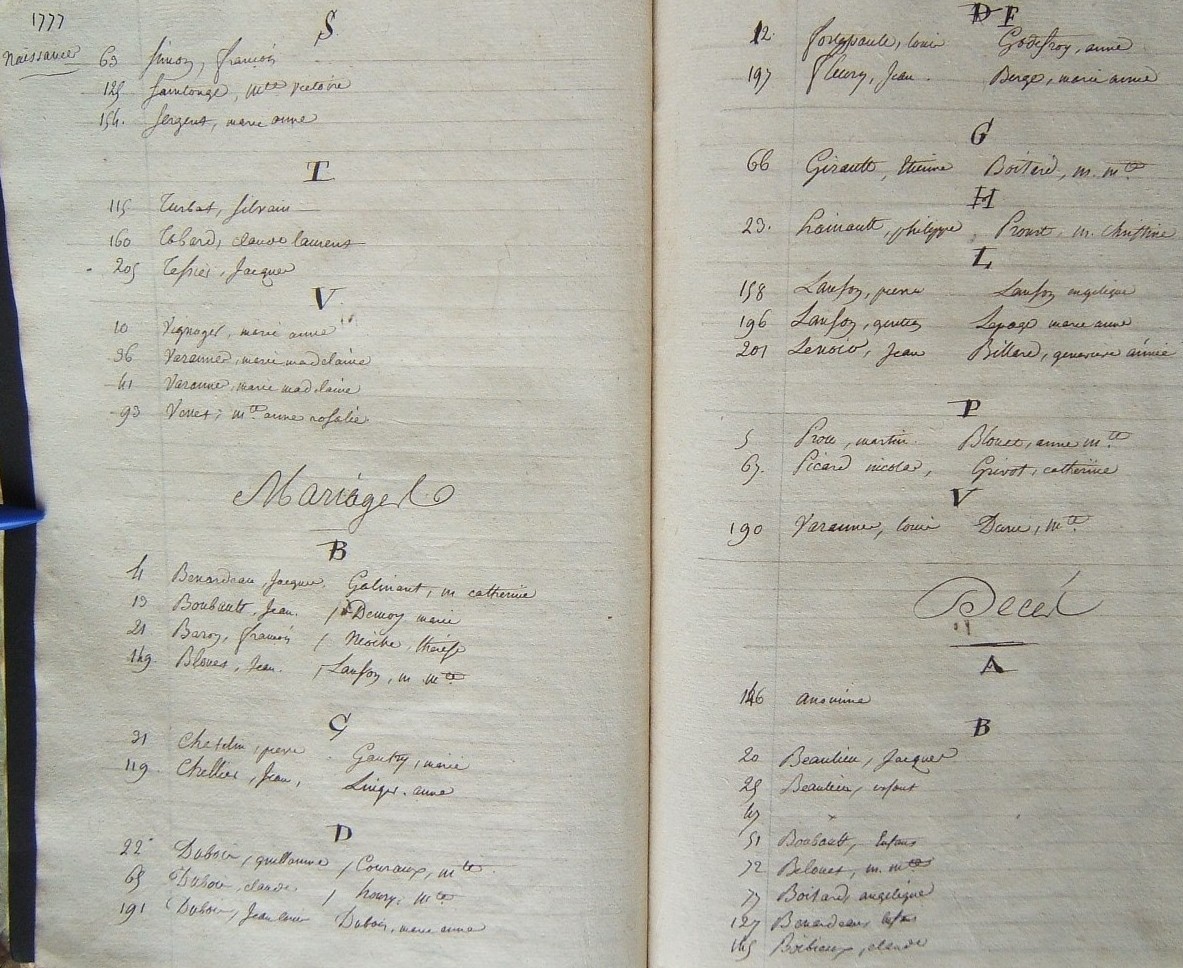 1777
Naissances
S
63 Simon, françois
125 Saintonge, mte victoire
154. Sergent, marie anne
T
115 Turbat, silvain
160 Tobard, claude laurent
205 Tessier, Jacques
V
10 Vignager, marie anne
36 Varanne, marie madelaine
41 Varanne, marie madelaine
93 Venet, mte anne rosalie
Mariages
B
4 Benardeau, Jacques. Galinant, m catherine
13 Boubault, Jean. / Demoy marie
21 Baron, françois / thérèse
149 Blouet, Jean. / Lanson, m mte
C
31 pierre Gautry, marie
119 Chellier, Jean, Linget. anne
D
22 Dubois, guillaume / Couraux, mte
65 Dubois, claude / houry, mte
191 Dubois, Jean louis Dubois, marie anne
D F
12 louis Godefroy, anne
197 fleury, Jean. Berge, marie anne
G
66 Girault, Etienne Boitard, m. mte
H
23. hainault, philippe, Proust, m. christine
L
158 Lanson, pierre Lanson angelique
196 Lanson, gentien Lepage marie anne
201 Lenoir, Jean Billard, genevieve aimée
P
5 Prou, martin. Blouet, anne mte
67. Picard nicolas, Grivot, catherine
V
190 Varanne, louis Dane, mte
Deces
A
146 anonime
B
20 Beaulieu, Jacques
25 Beaulieu, enfant
47
51 Boubault, Enfant
72 Belouet, m. mte
77 Boitard, angelique
127 Benardeau, Enfant
145 claude